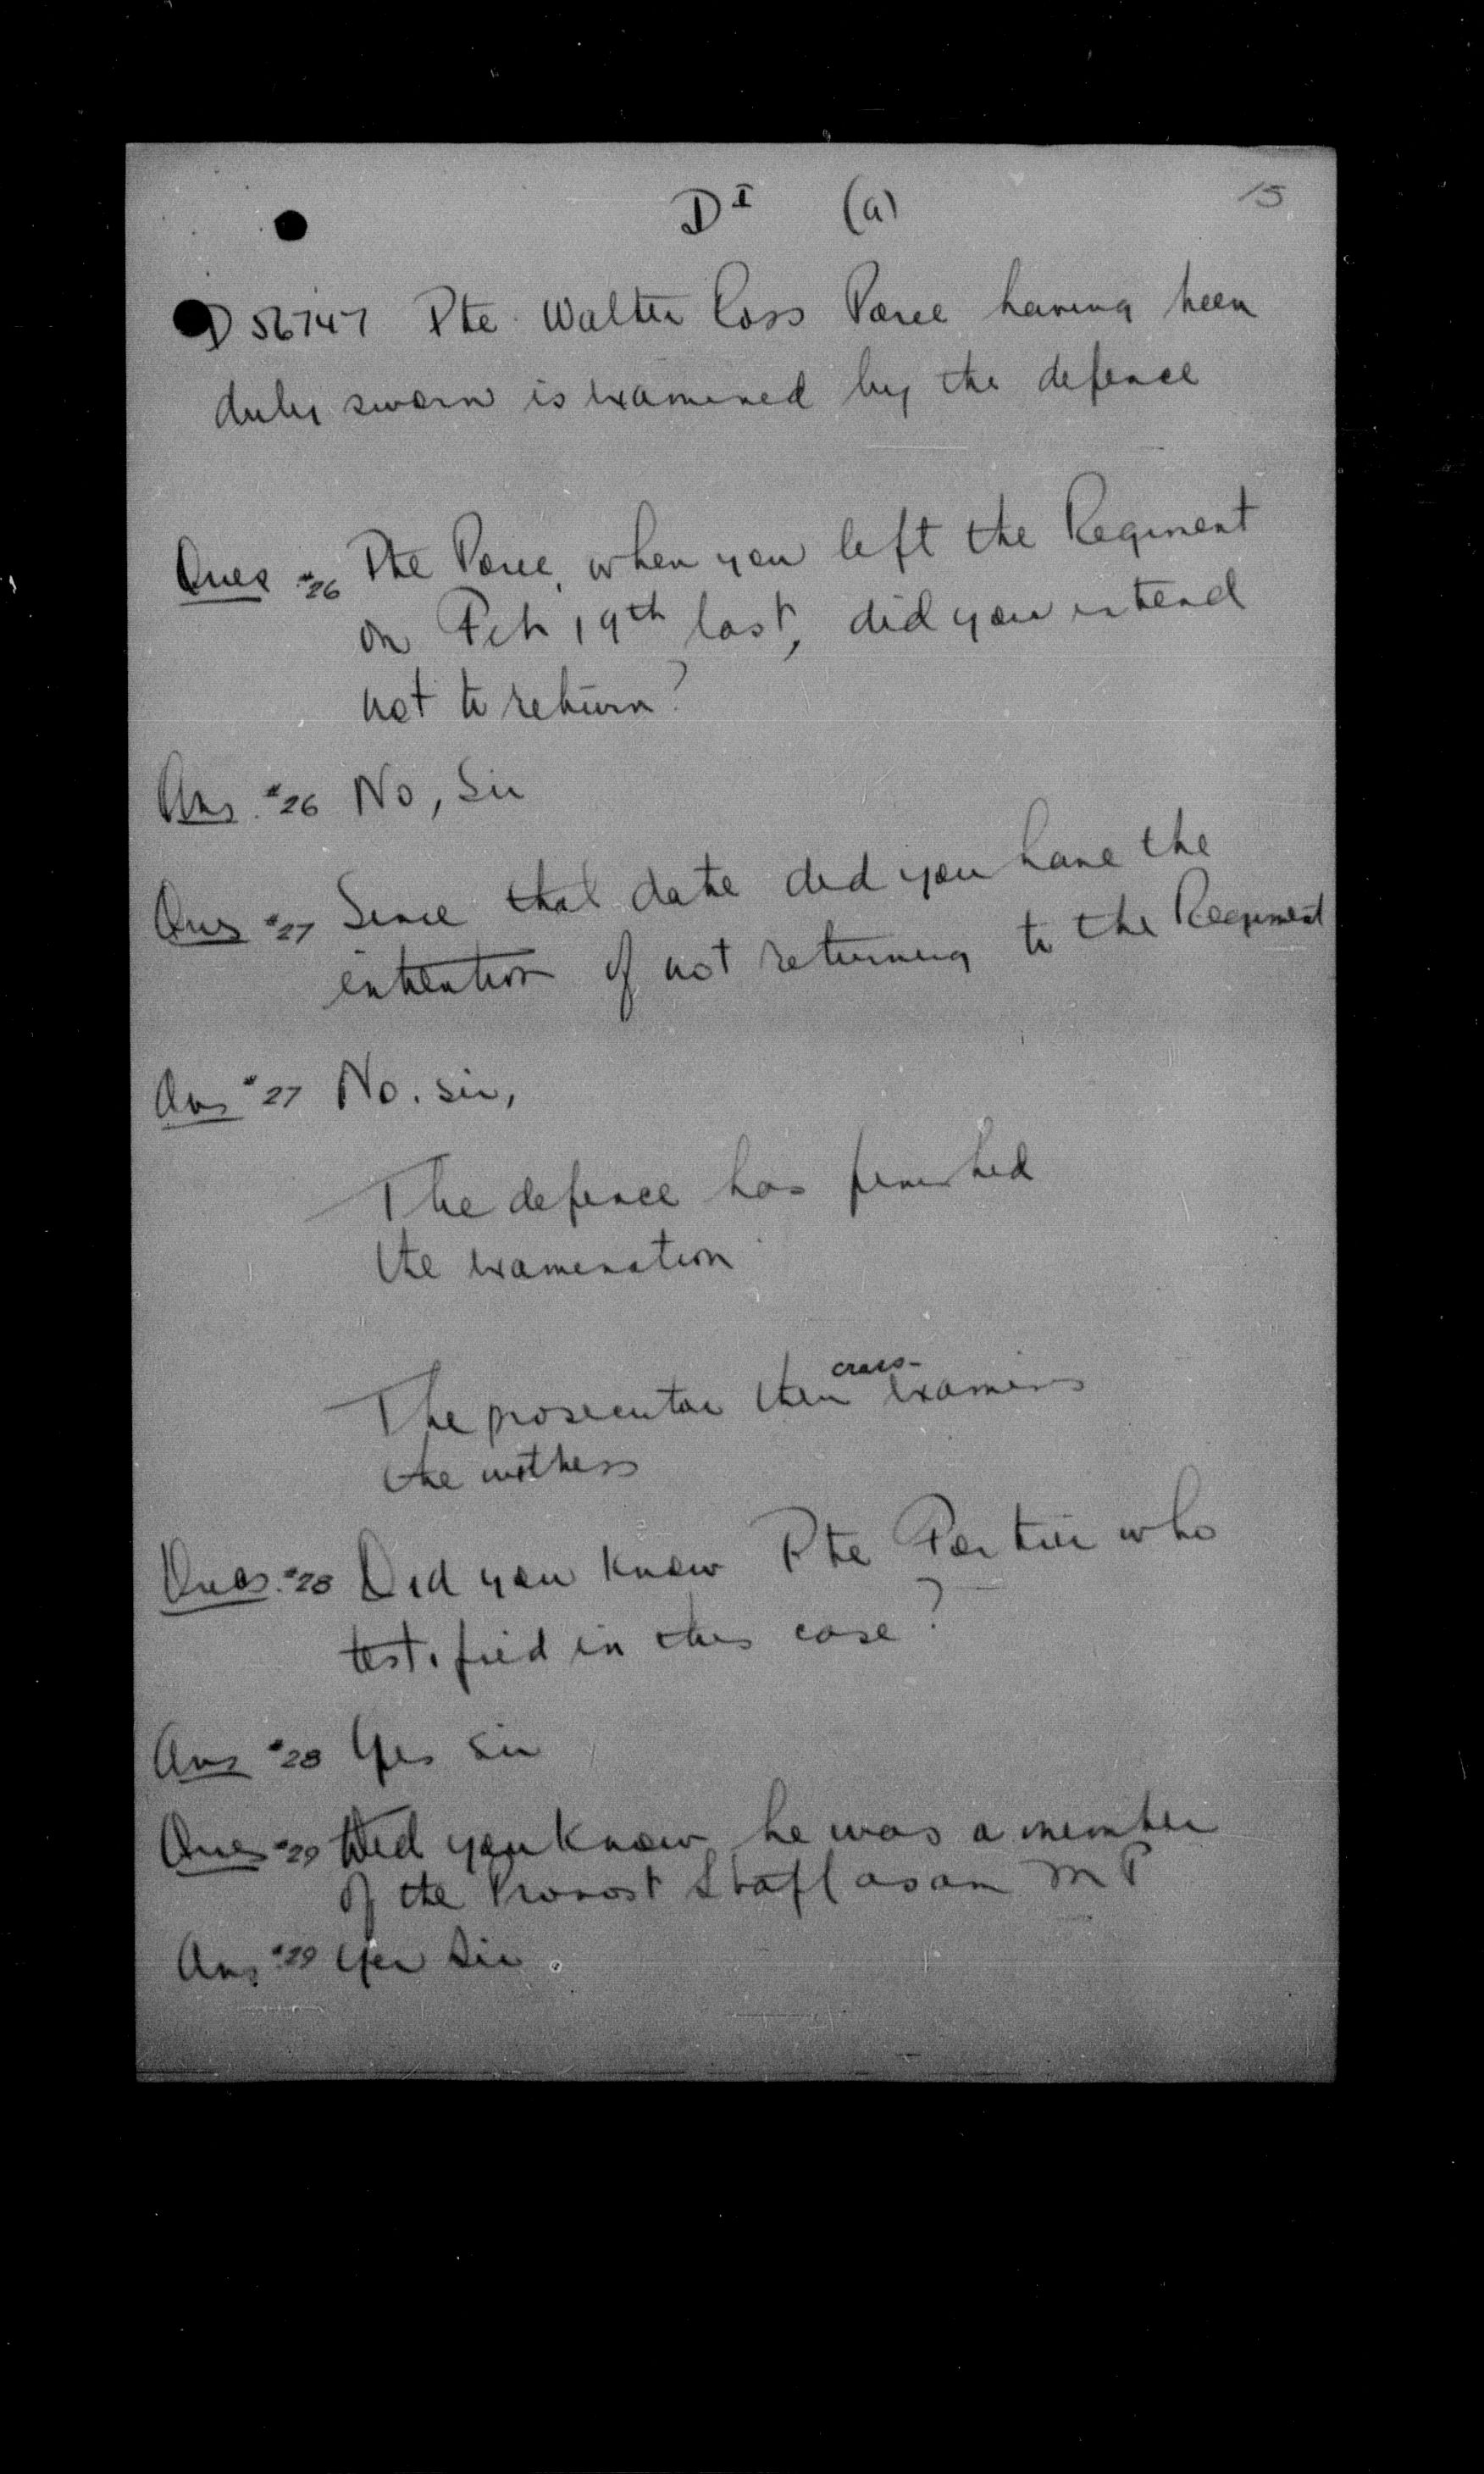 D I (a) 15
D 56747 Pte Walter Ross having been
duly sworn is examined by the defence
Ques #26 Pte when you left the Regiment
on Feb 19th last, did you intend
not to return?
Ans. #26 No, Sir
Ques #27 Since that date did you have the
intention of not returning to the Regiment
Ans #27 No. sir,
The defence has finished
the examination
The prosecutor then cross-examines
the witness
Ques. #28 Did you know Pte who
testified in this case?
Ans #28 Yes Sir
Ques #29 Did you know he was a member
of the Provost Staff as an M P
Ans. #29 Yes Sir.